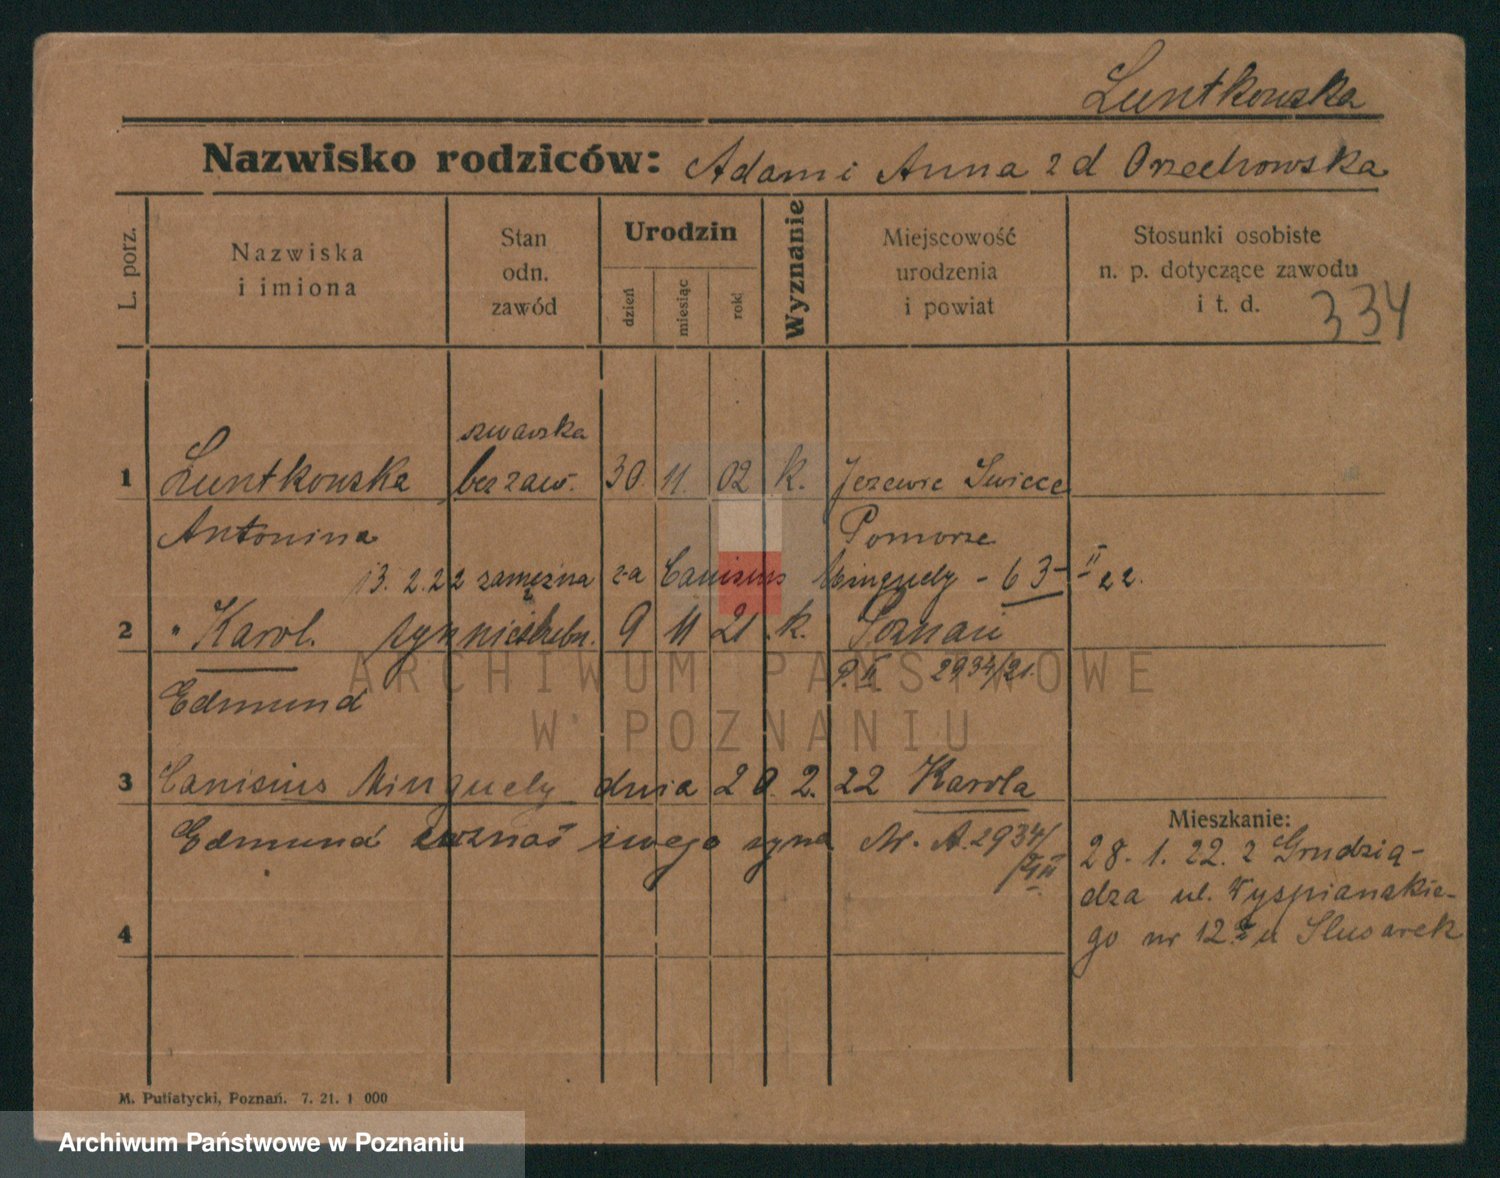 Luntkowska
Nazwisko rodziców: Adam i Anna z d Orzechowska
L. porz.
Nazwiska
i imiona
Stan
odn.
zawód
Urodzin
dzień
miesiąc
rok
Wyznanie
Miejscowość
urodzenia
i powiat
Stosunki osobiste
n. p. dotyczące zawodu
i t. d.
334
szwaczka
1 Luntkowska bez zaw. 30. 11. 02 k. Jezewie Swiece
Antonina Pomorze
13. 2. 22 zamężna z-a Canisius Minguely - 63 - II 22.
2 " Karol. syn nieślubn. 9 11 21 k. Poznań
P. II 2934/21.
Edmund
3 Canisius Minguely dnia 20. 2. 22 Karola
Edmund uznał swego syna Nr. A. 2934/
P II
Mieszkanie:
28. 1. 22. z Grudzią-
dza ul. Wyspiańskie-
go nr 12 u Slusarek
4
M. Putiatycki, Poznań. 7. 21. 1 000
ARCHIWUM PAŃSTWOWE
W POZNANIU
Archiwum Państwowe w Poznaniu